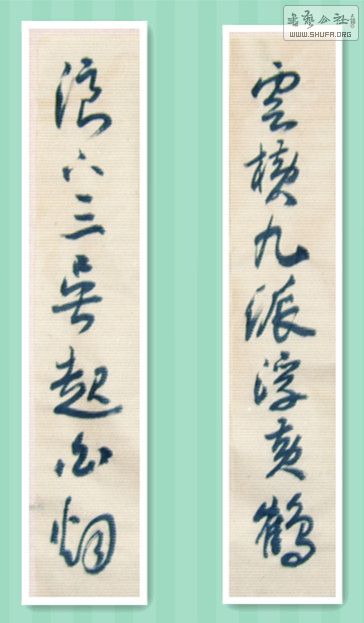 雲橫九派浮黃鶴
浪下三吳起白烟
書藝公社
WWW.SHUFA.ORG